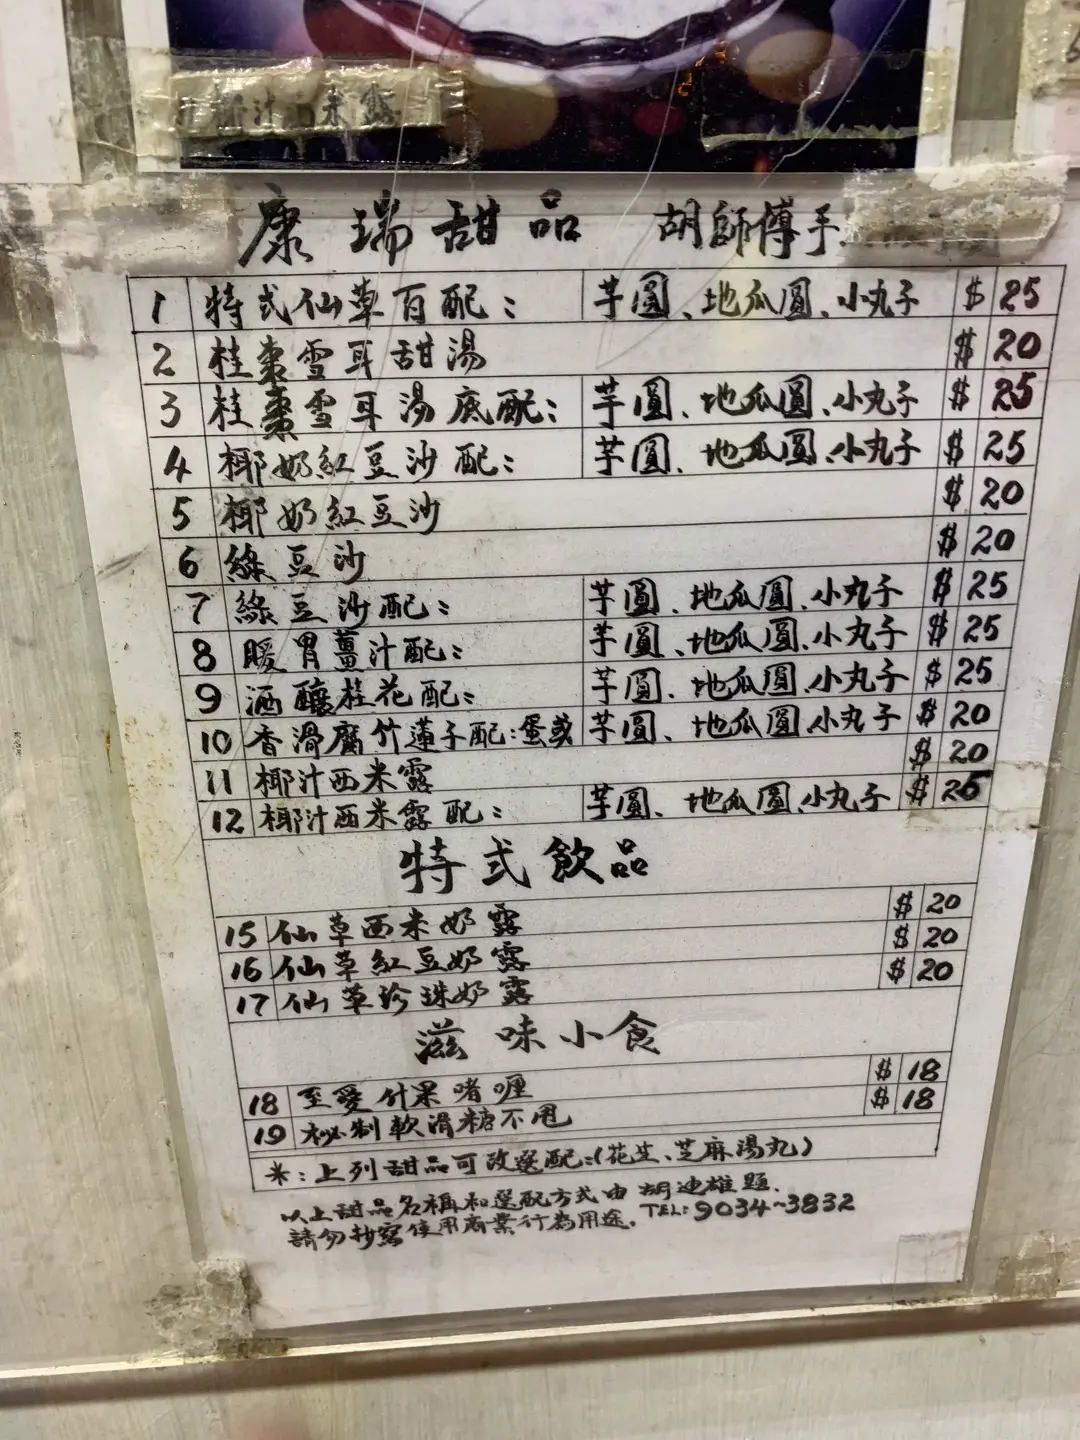 椰汁西米露
康瑞甜品 胡師傅手
1 特式仙草百配： 芋圓、地瓜圓、小丸子 $ 25
2 桂棗雪耳甜湯 $ 20
3 桂棗雪耳湯底配： 芋圓、地瓜圓、小丸子 $ 25
4 椰奶紅豆沙配： 芋圓、地瓜圓、小丸子 $ 25
5 椰奶紅豆沙 $ 20
6 綠豆沙 $ 20
7 綠豆沙配： 芋圓、地瓜圓、小丸子 $ 25
8 暖胃薑汁配： 芋圓、地瓜圓、小丸子 $ 25
9 酒釀桂花配： 芋圓、地瓜圓、小丸子 $ 25
10 香滑腐竹蓮子配：蛋或 芋圓、地瓜圓、小丸子 $ 20
11 椰汁西米露 $ 20
12 椰汁西米露配： 芋圓、地瓜圓、小丸子 $ 25
特式飲品
15 仙草西米奶露 $ 20
16 仙草紅豆奶露 $ 20
17 仙草珍珠奶露 $ 20
滋味小食
18 至愛什果啫喱 $ 18
19 秘制軟滑糖不甩 $ 18
*：上列甜品可改選配：(花生、芝麻湯丸)
以上甜品名稱和選配方式由胡迪雄題．
請勿抄寫使用商業行為用途． TEL: 9034~3832